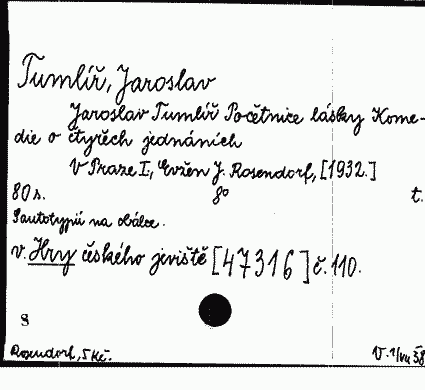 Tumlíř, Jaroslav
Jaroslav Tumlíř Početnice lásky Kome-
die o čtyřech jednáních
V Praze I, Evžen J. Rosendorf, [1932.]
80 s. 8° t.
S autotypií na obálce.
v. Hry českého jeviště [47316] č. 110.
S
Rosendorf, 5 Kč. V.